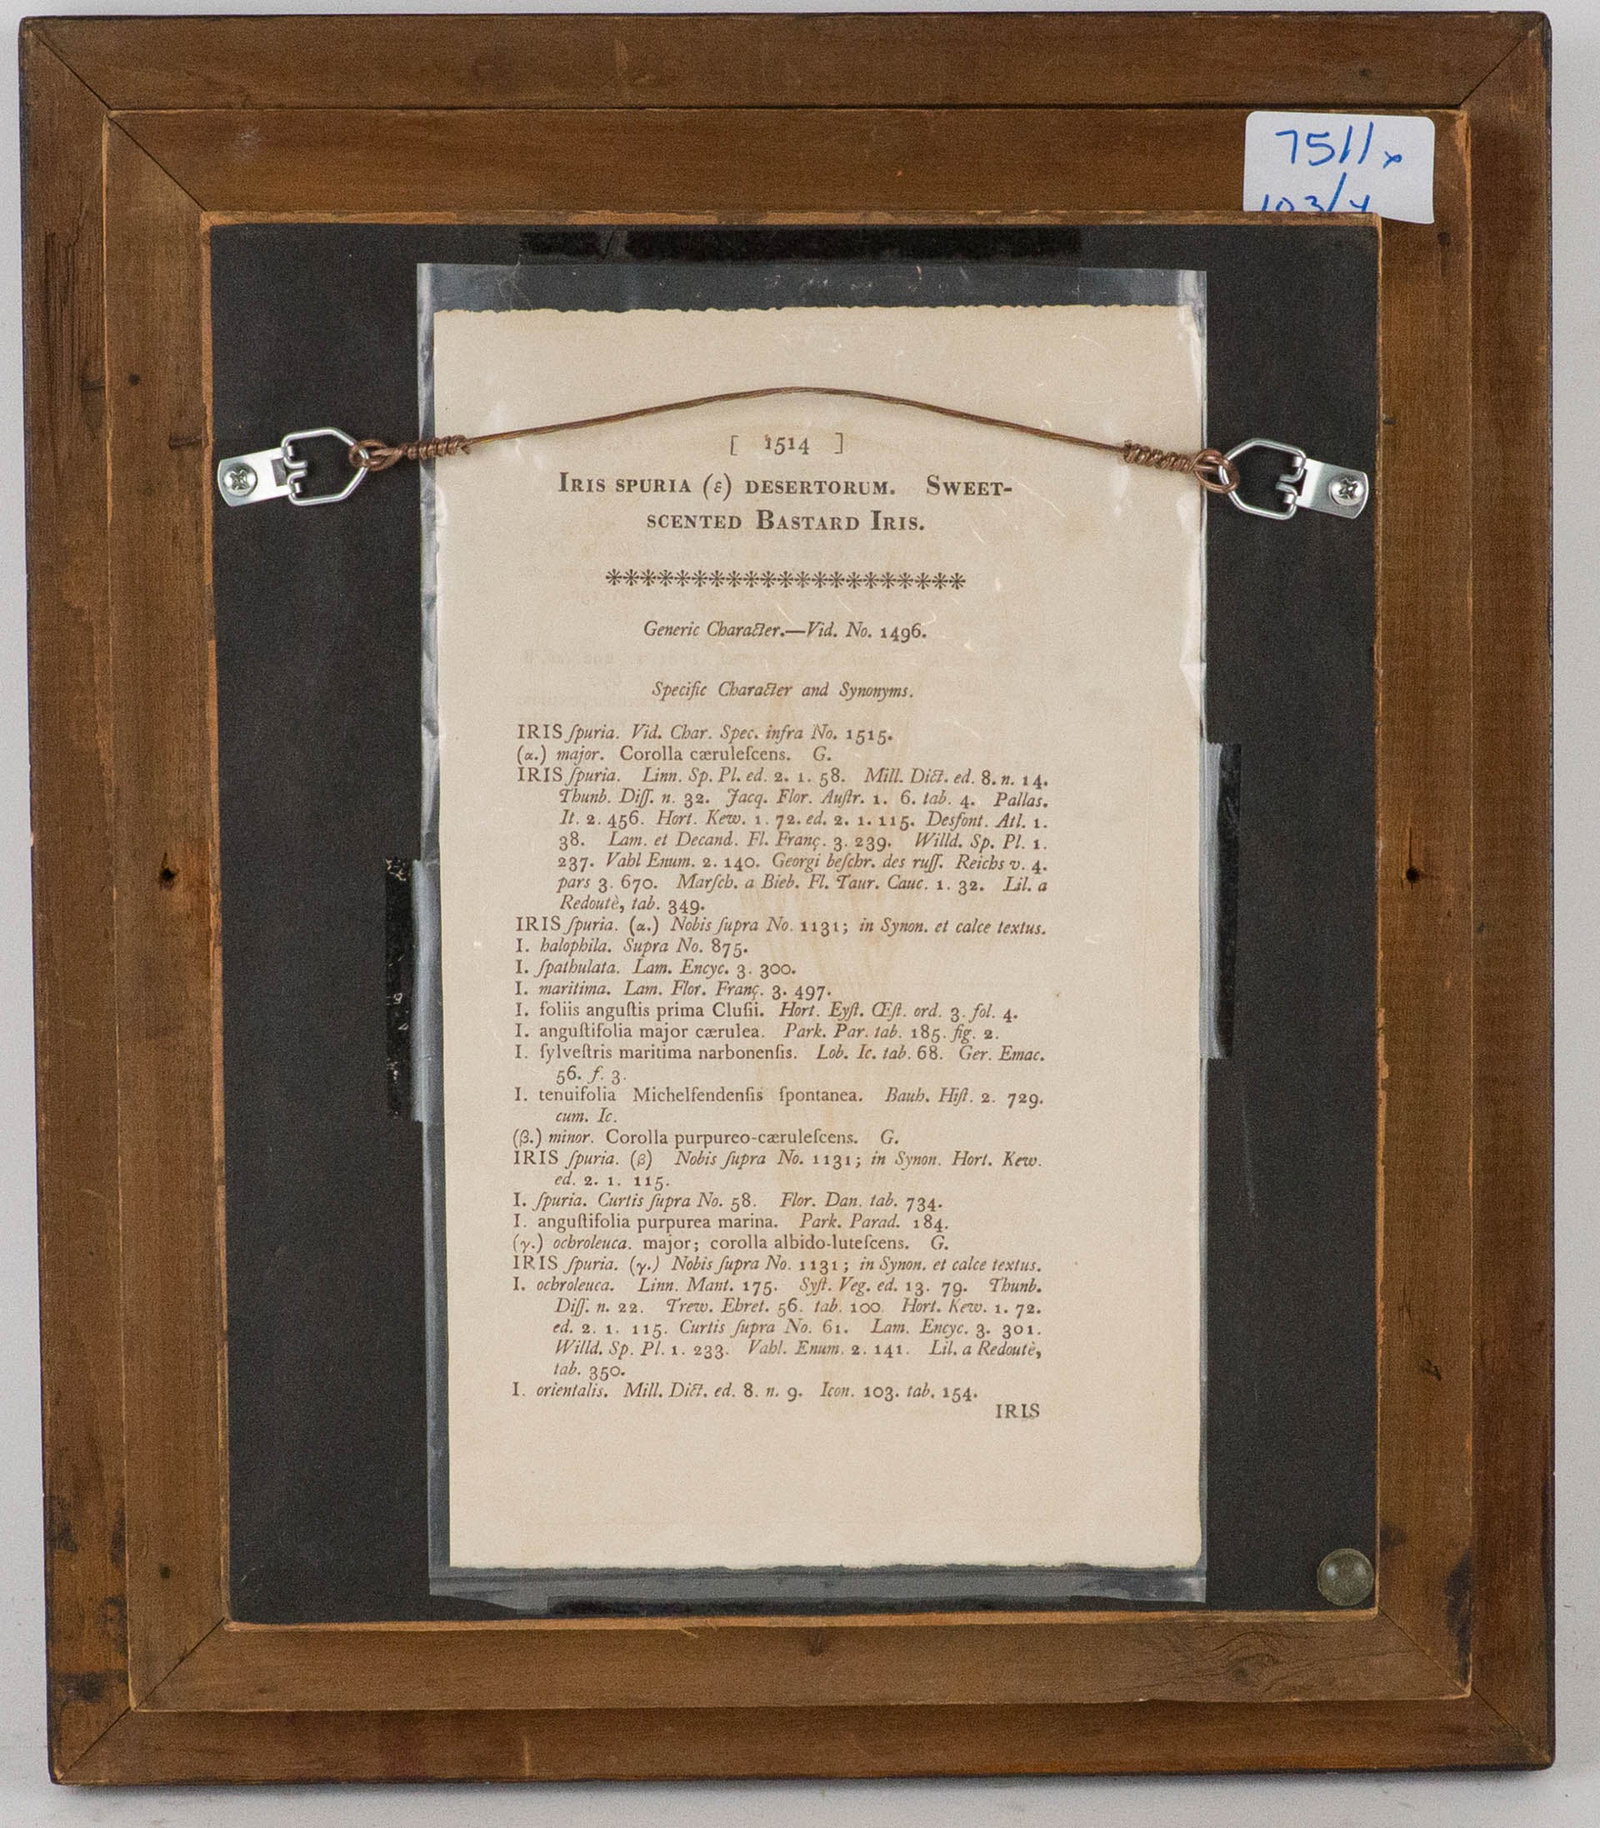 7511x
103/4
[ 1514 ]
Iris spuria (ε) desertorum. Sweet-
scented Bastard Iris.
✳✳✳✳✳✳✳✳✳✳✳✳✳✳✳✳✳✳✳✳✳
Generic Character.—Vid. No. 1496.
Specific Character and Synonyms.
IRIS ſpuria. Vid. Char. Spec. infra No. 1515.
(α.) major. Corolla cæruleſcens. G.
IRIS ſpuria. Linn. Sp. Pl. ed. 2. 1. 58. Mill. Dict. ed. 8. n. 14.
Thunb. Diſſ. n. 32. Jacq. Flor. Auſtr. 1. 6. tab. 4. Pallas.
It. 2. 456. Hort. Kew. 1. 72. ed. 2. 1. 115. Desfont. Atl. 1.
38. Lam. et Decand. Fl. Franç. 3. 239. Willd. Sp. Pl. 1.
237. Vahl Enum. 2. 140. Georgi beſchr. des ruſſ. Reichs v. 4.
pars 3. 670. Marſch. a Bieb. Fl. Taur. Cauc. 1. 32. Lil. a
Redoutè, tab. 349.
IRIS ſpuria. (α.) Nobis ſupra No. 1131; in Synon. et calce textus.
I. halophila. Supra No. 875.
I. ſpathulata. Lam. Encyc. 3. 300.
I. maritima. Lam. Flor. Franç. 3. 497.
I. foliis anguſtis prima Cluſii. Hort. Eyſt. Œſt. ord. 3. fol. 4.
I. anguſtifolia major cærulea. Park. Par. tab. 185. fig. 2.
I. ſylveſtris maritima narbonenſis. Lob. Ic. tab. 68. Ger. Emac.
56. f. 3.
I. tenuifolia Michelfendenſis ſpontanea. Bauh. Hiſt. 2. 729.
cum. Ic.
(β.) minor. Corolla purpureo-cæruleſcens. G.
IRIS ſpuria. (β) Nobis ſupra No. 1131; in Synon. Hort. Kew.
ed. 2. 1. 115.
I. ſpuria. Curtis ſupra No. 58. Flor. Dan. tab. 734.
I. anguſtifolia purpurea marina. Park. Parad. 184.
(γ.) ochroleuca. major; corolla albido-luteſcens. G.
IRIS ſpuria. (γ.) Nobis ſupra No. 1131; in Synon. et calce textus.
I. ochroleuca. Linn. Mant. 175. Syſt. Veg. ed. 13. 79. Thunb.
Diſſ. n. 22. Trew. Ehret. 56. tab. 100. Hort. Kew. 1. 72.
ed. 2. 1. 115. Curtis ſupra No. 61. Lam. Encyc. 3. 301.
Willd. Sp. Pl. 1. 233. Vahl. Enum. 2. 141. Lil. a Redoutè,
tab. 350.
I. orientalis. Mill. Dict. ed. 8. n. 9. Icon. 103. tab. 154.
IRIS